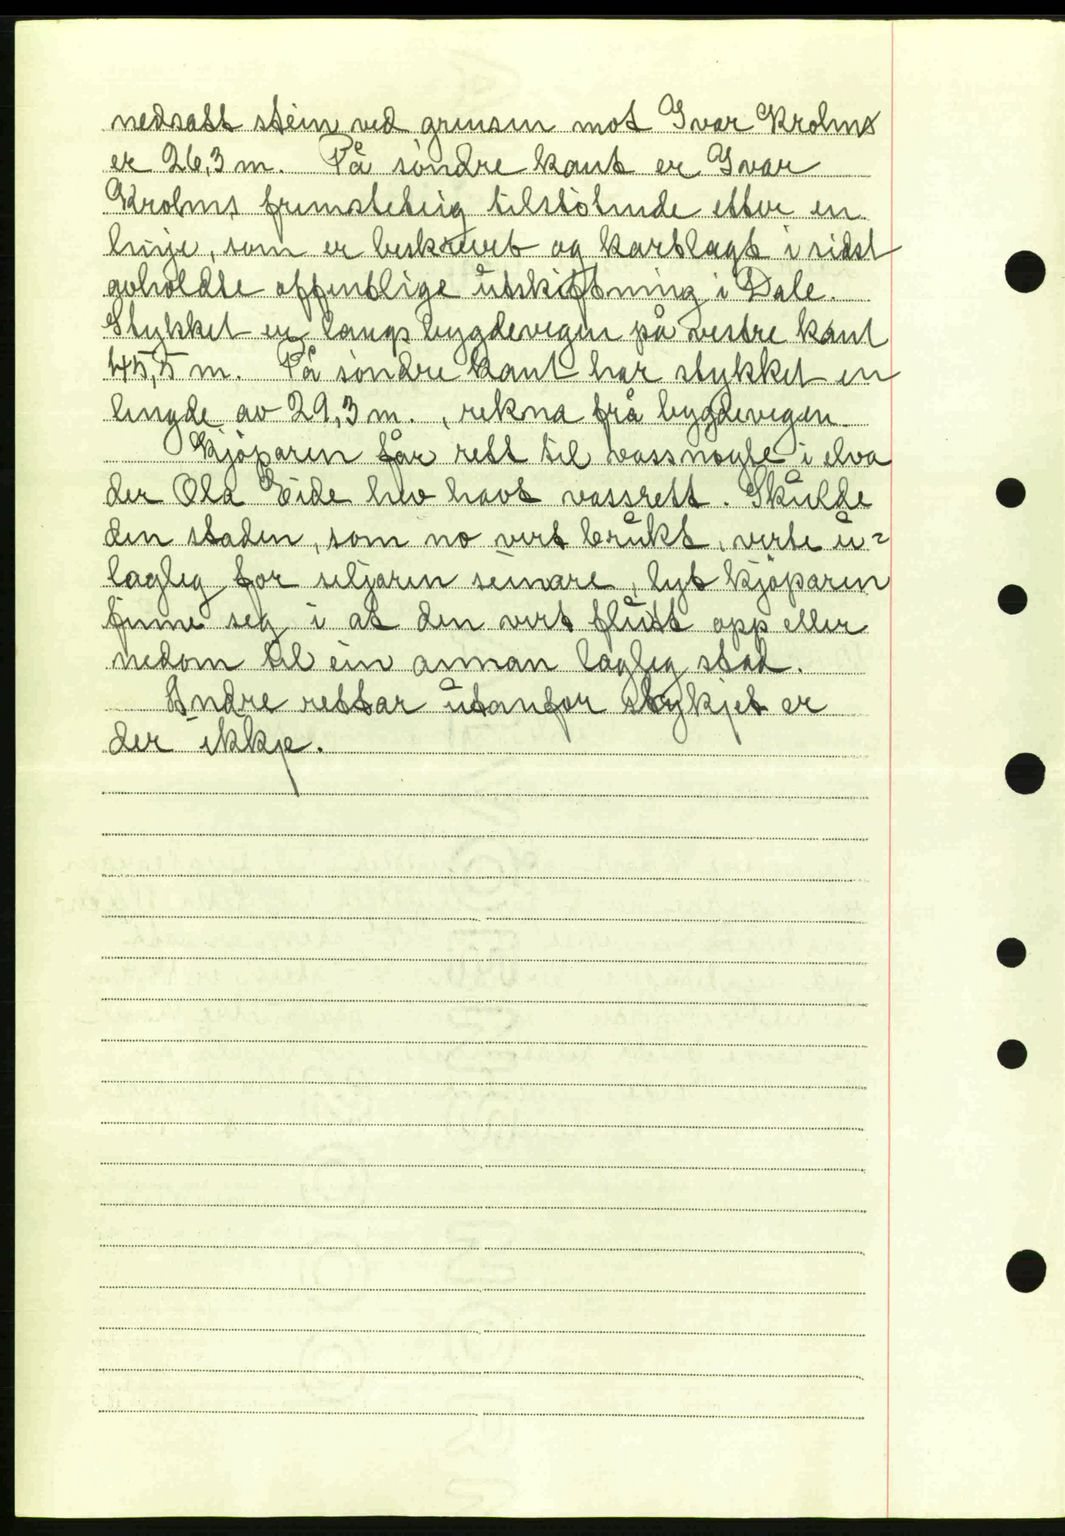 nedsatt stein ved grensen mot Ivar Krohns
er 26,3 m. På søndre kant er Ivar
Krohns fremsteteig tilstøtende etter en
linje, som er beskrevet og kartlagt i sidst
avholdte offentlige utskiftning i Dale.
Stykket er langs bygdevegen på vestre kant
45,5 m. På søndre kant har stykket en
lengde av 29,3 m., rekna frå bygdevegen.
Kjøparen får rett til vassnøyte i elva
der Ola Eide hev havt vassrett. Skulde
den staden, som no vert brukt, verte u=
lagleg for seljaren seinare, lyt kjøparen
finne seg i at den vert flutt opp eller
nedom til ein annan lagleg stad.
Andre rettar utanfor stykjet er
der ikkje.